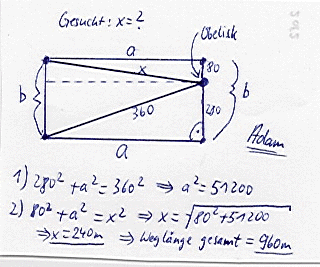 Gesucht: x = ?
a
Obelisk
x
80
b
b
360
280
a
Adam
1) 280² + a² = 360² ⇒ a² = 51200
2) 80² + a² = x² ⇒ x = √80² + 51200
⇒ x = 240m ⇒ Weglänge gesamt = 960m